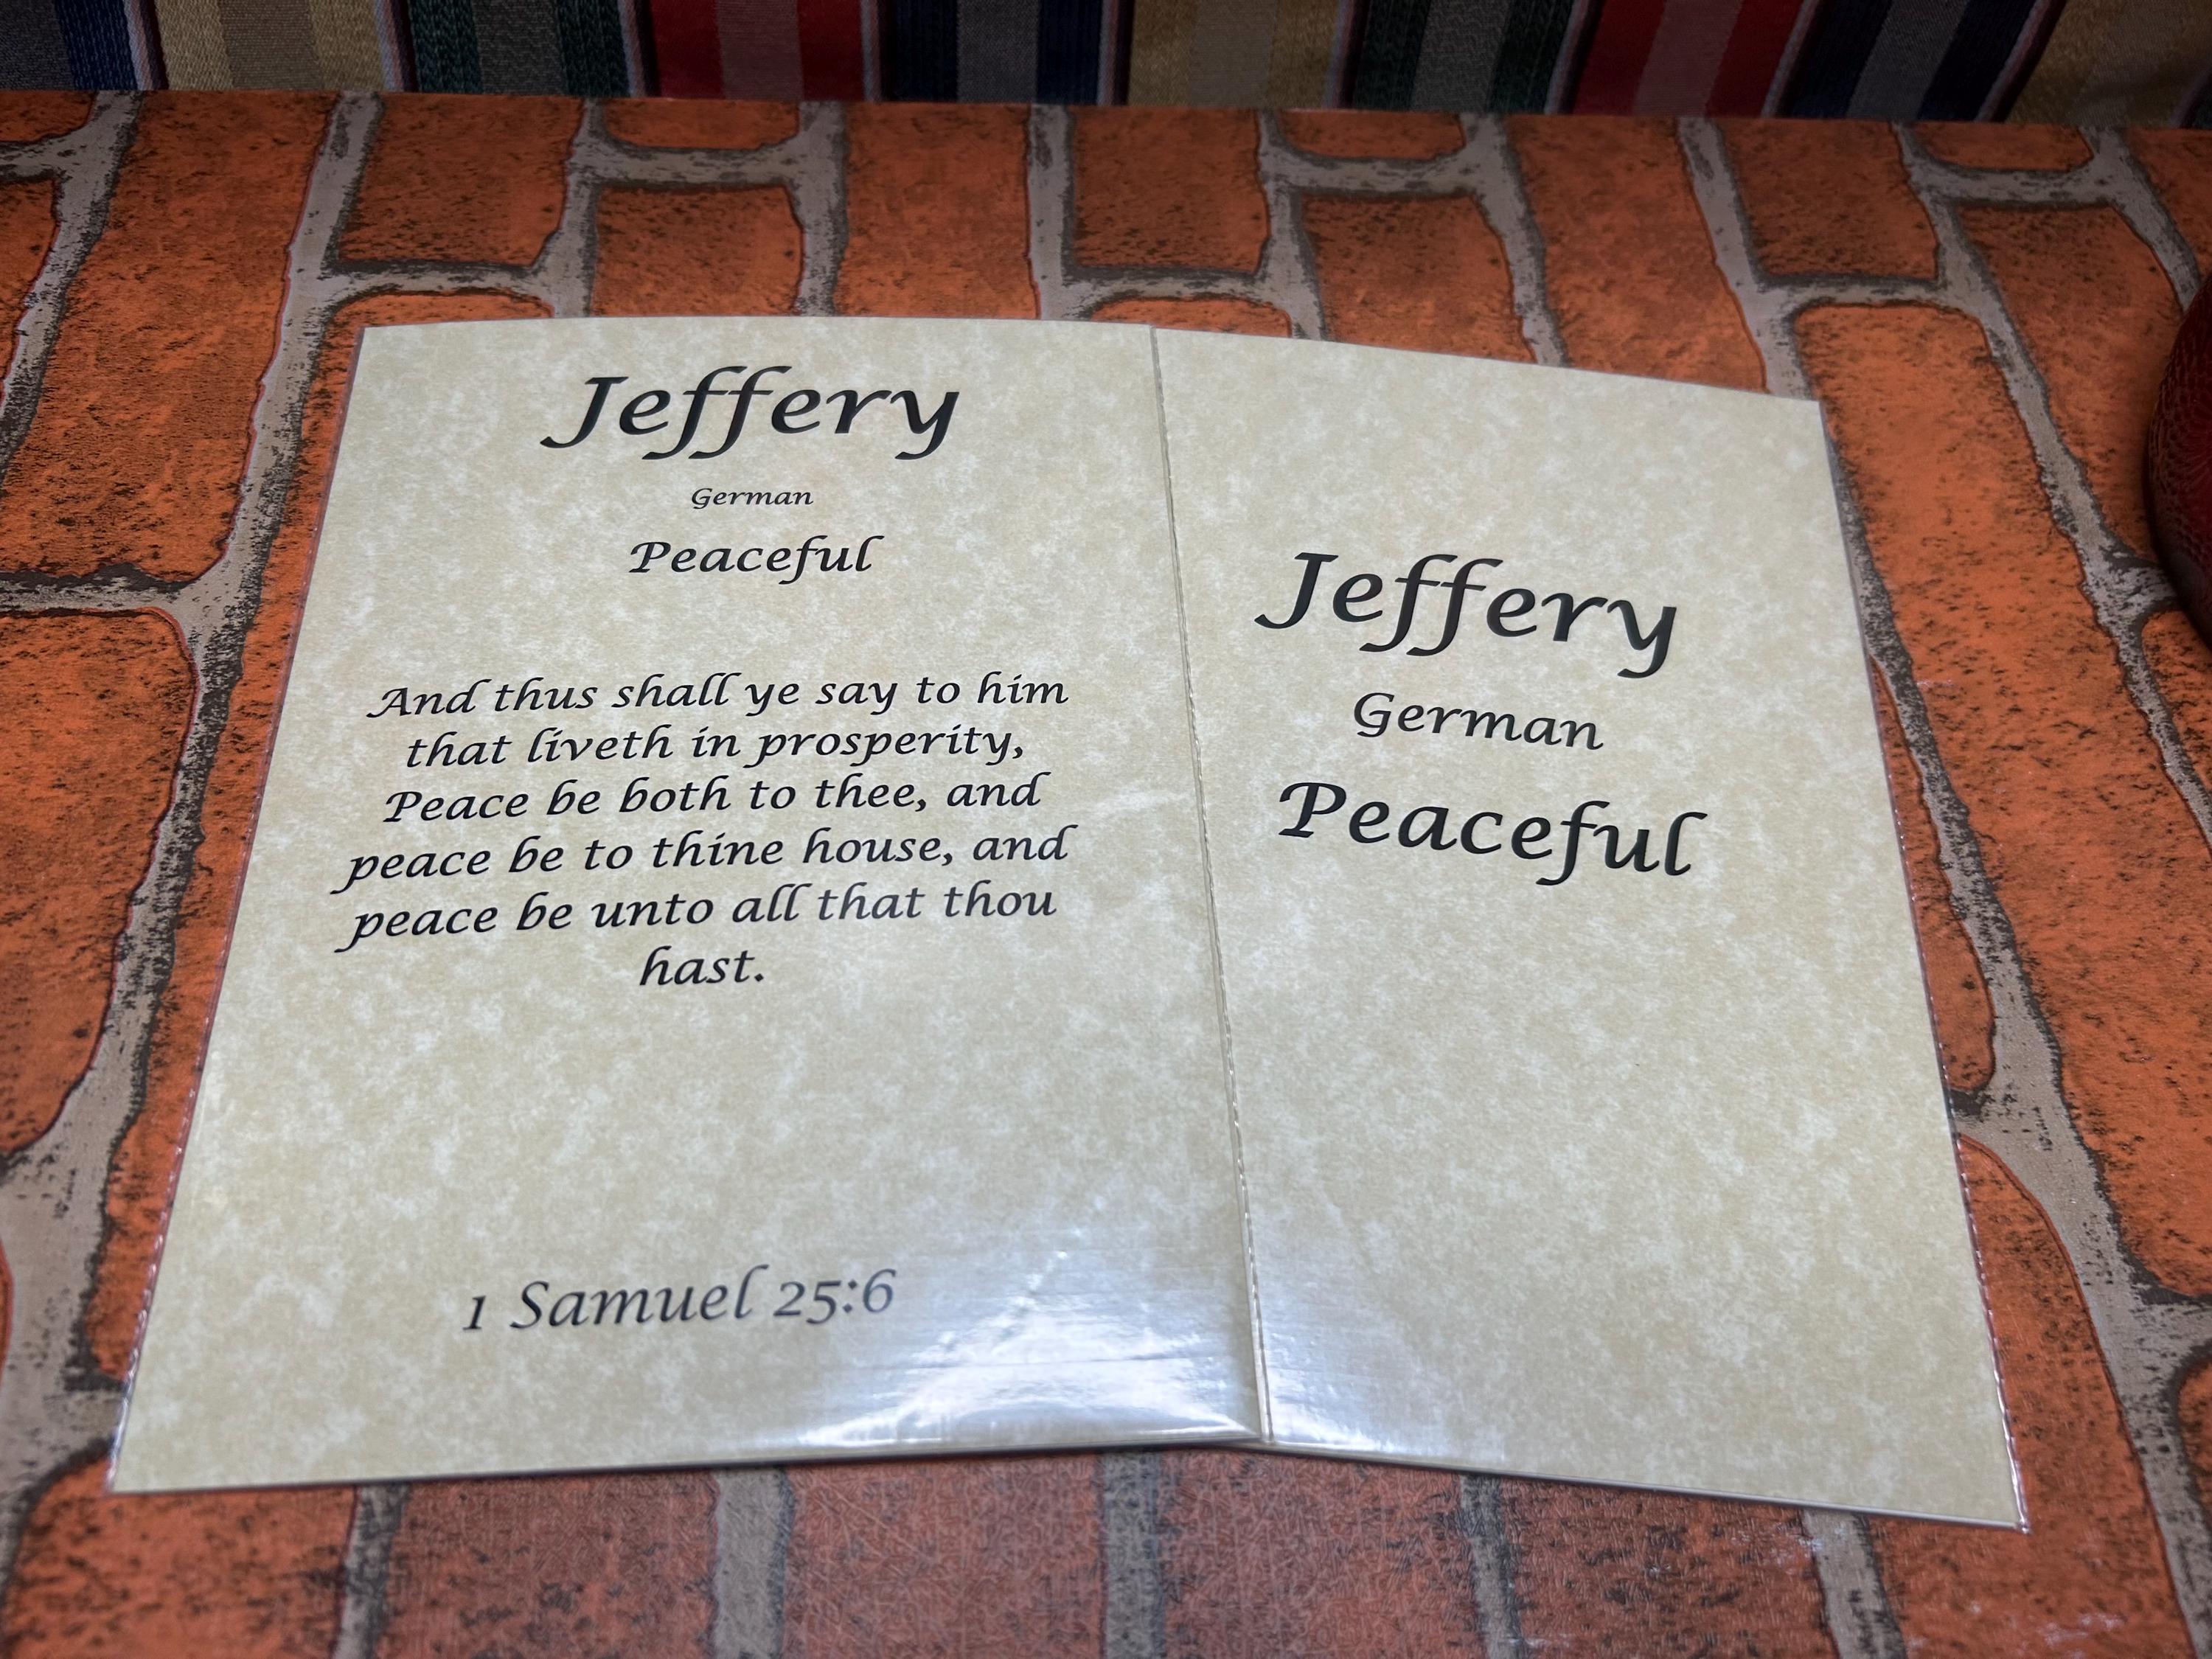 Jeffery
German
Peaceful
And thus shall ye say to him
that liveth in prosperity,
Peace be both to thee, and
peace be to thine house, and
peace be unto all that thou
hast.
1 Samuel 25:6
Jeffery
German
Peaceful